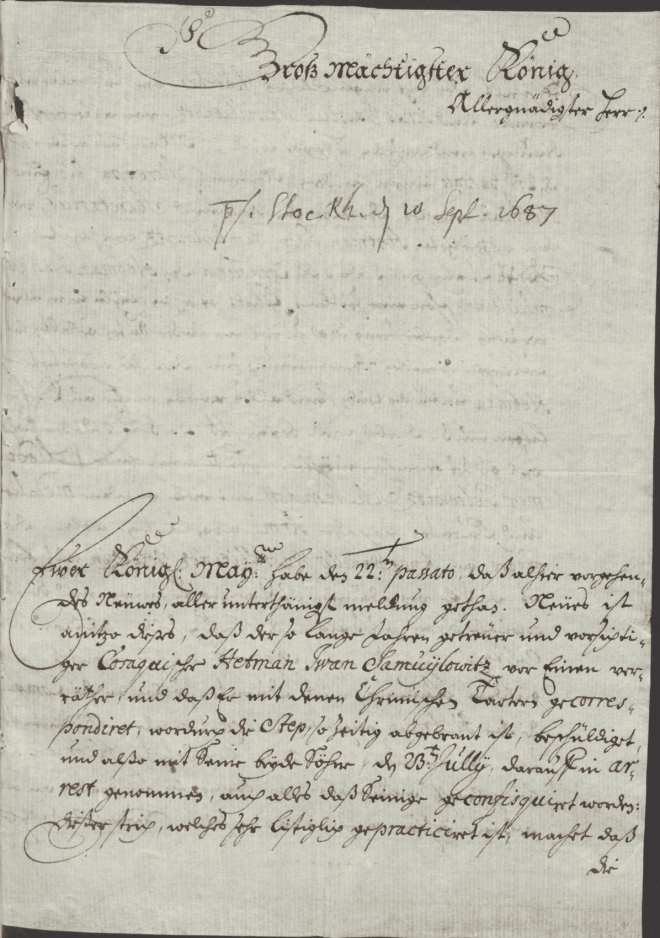 Groß Mächtigster König
Allergnädigster Herr
ps. Stockh. d 10 Sept. 1687
Ewer Königl: May:tt habe den 22:tn passato, daß alhier vorgehen-
des Neuwes, aller unterthänigst meldung gethan. Neües ist
anitzo dieses, daß der so lange Jahren getreuer und vorsichti-
ger Cosaquischer Hetman Iwan Samuijlowitz vor Einen ver-
räther, und daß Er mit denen Chrimischen Tartern gecorres-
pondiret, wordurch die Step, so zeitig abgebrant ist, beschüldiget,
und also mit Seine beyde Söhne, den 23:t Jullij, darauff in ar-
rest genommen, auch alles daß Seinige geconfisquiret worden:
dieser strich, welches sehr listiglich gepracticiret ist, machet daß
die